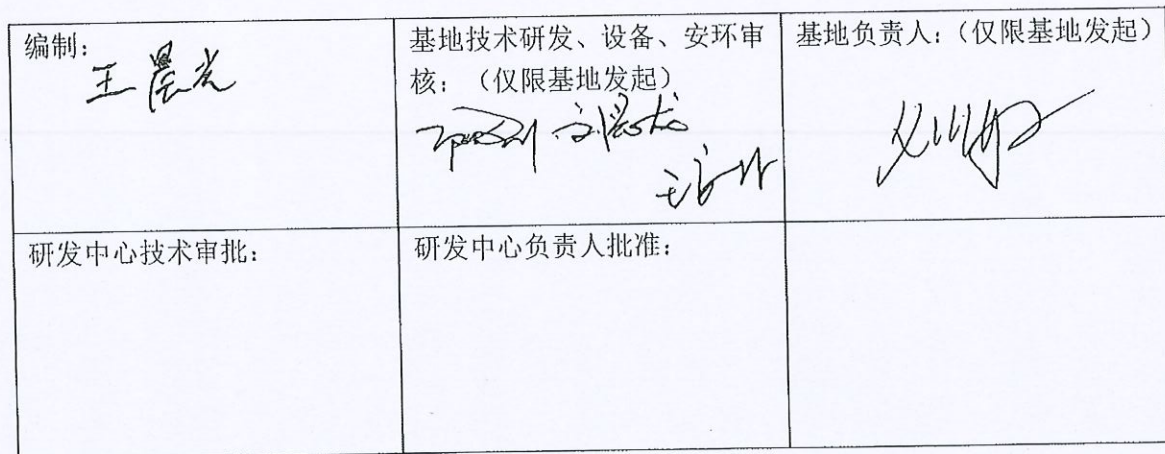 编制：
王晨光
基地技术研发、设备、安环审
核：（仅限基地发起）
基地负责人：（仅限基地发起）
研发中心技术审批：
研发中心负责人批准：